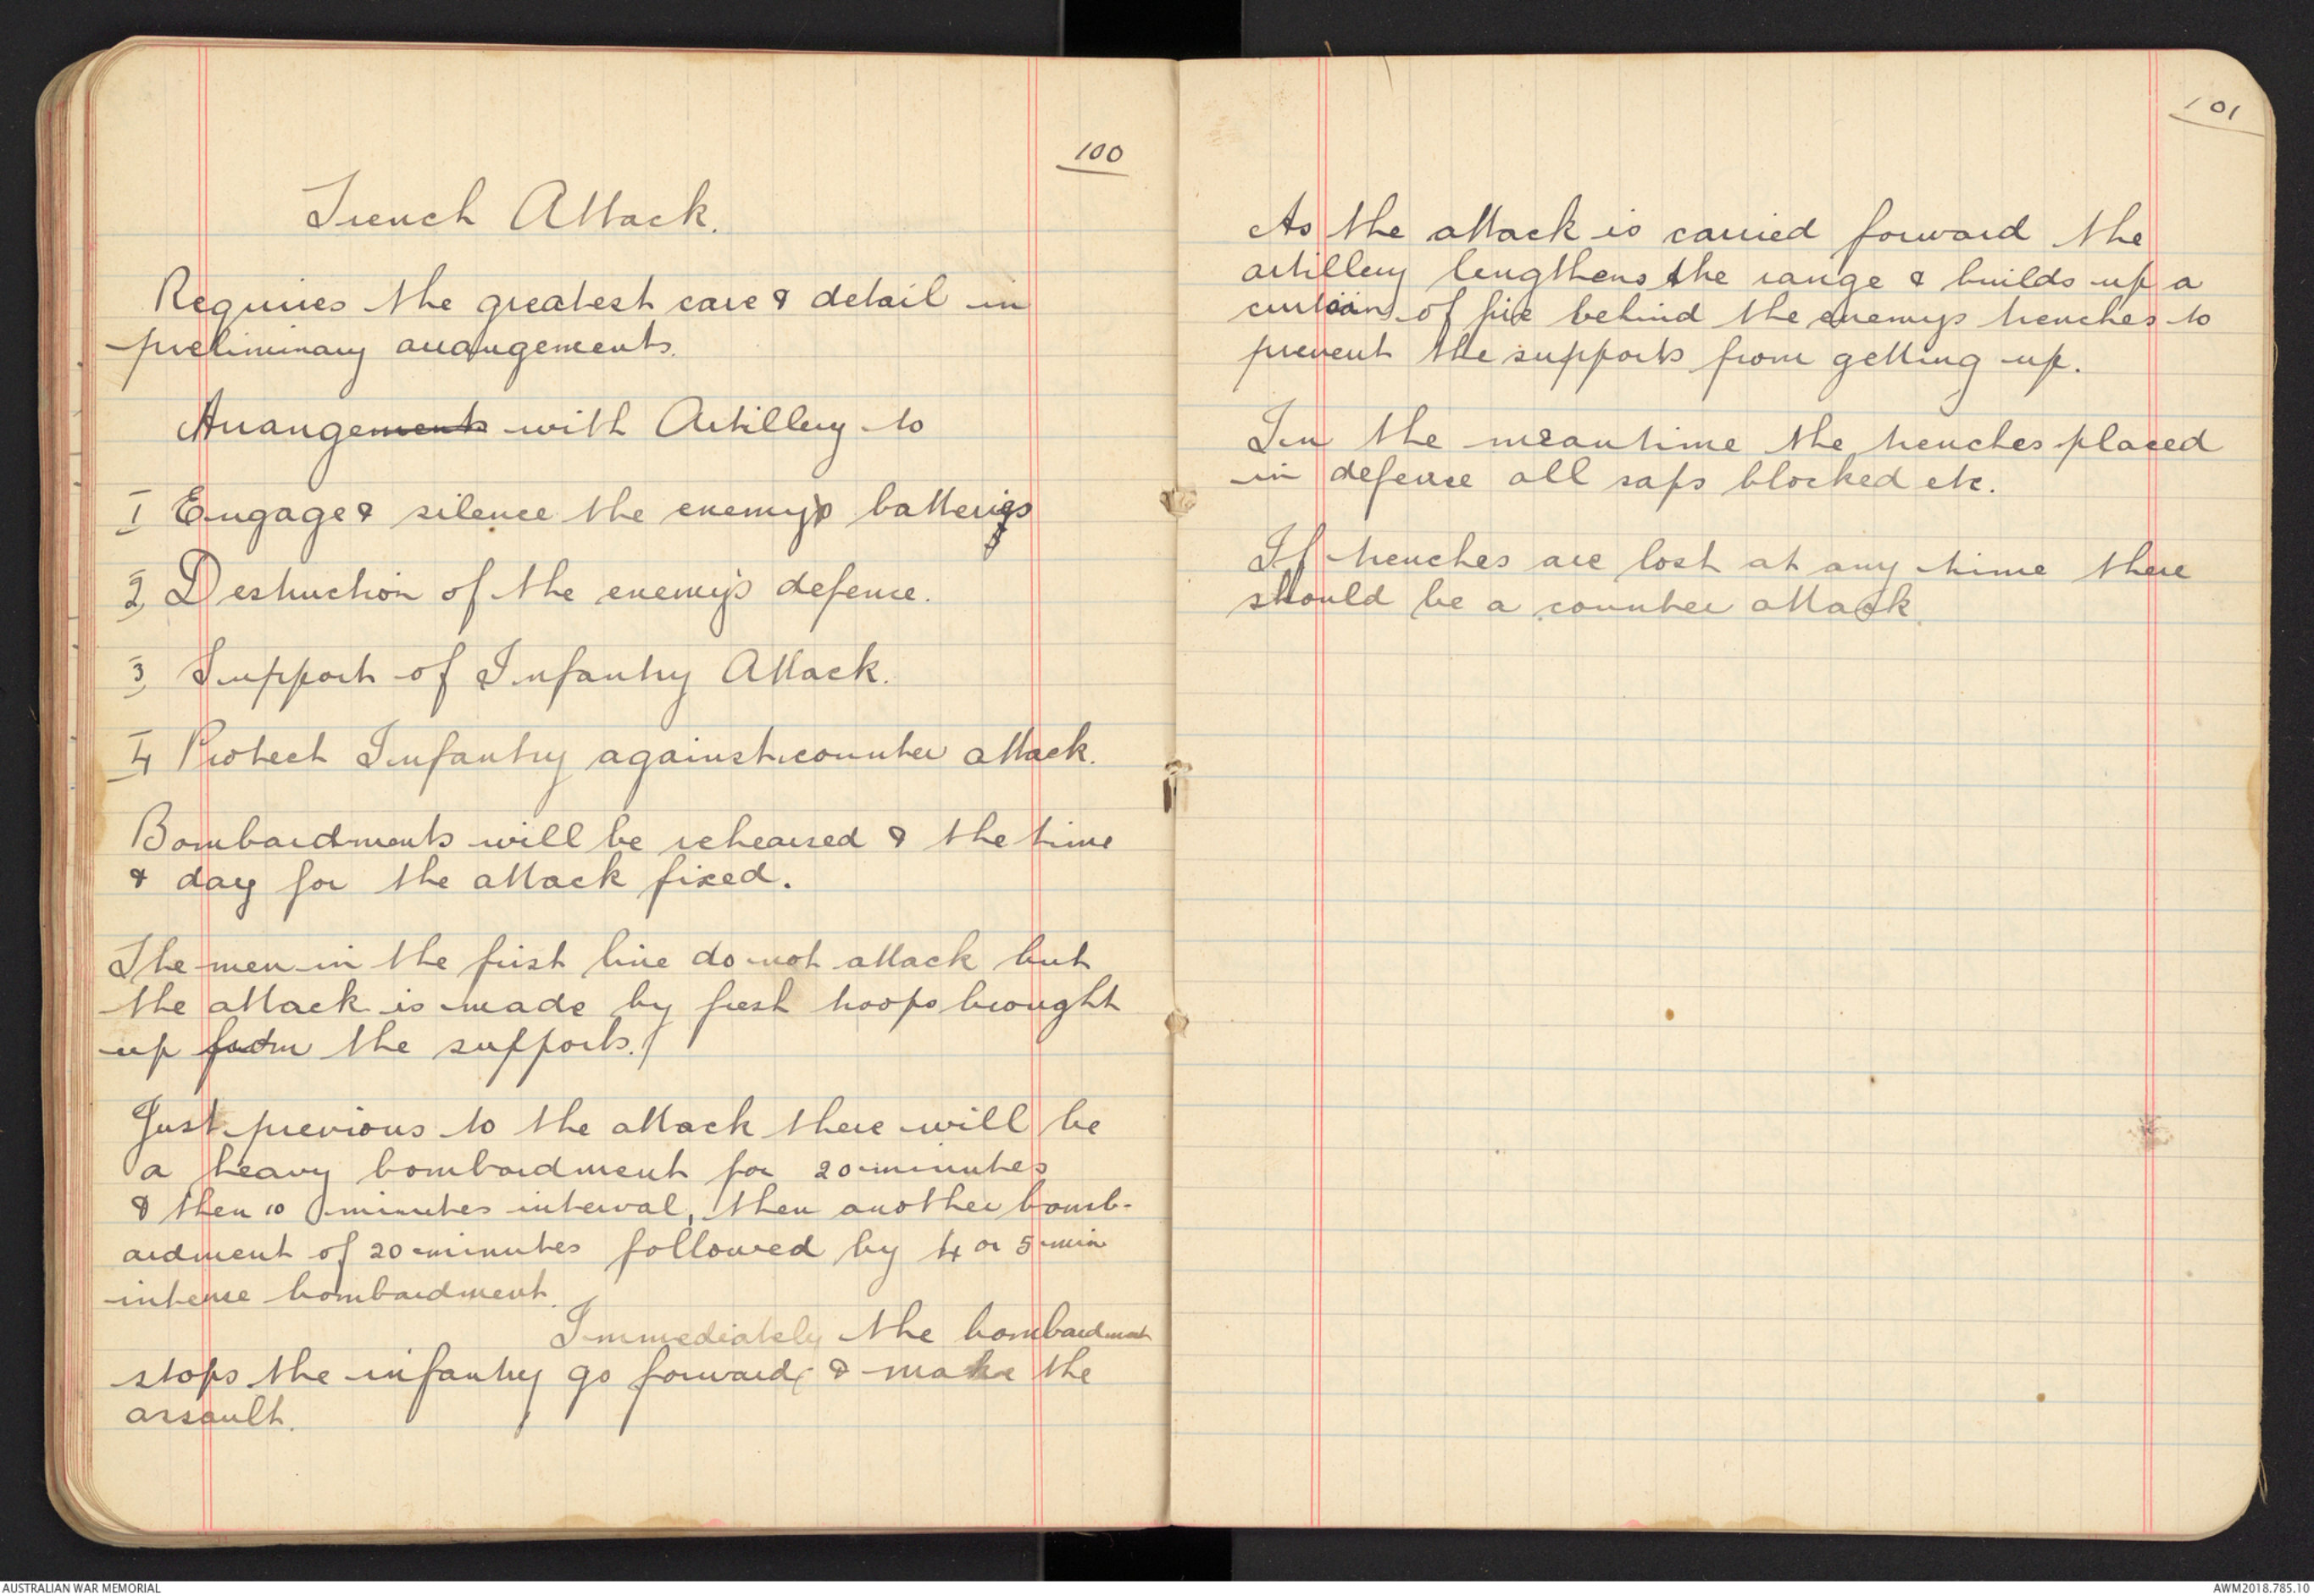 100
Trench Attack.
Requires the greatest care & detail in
preliminary arrangements.
Arrangements with Artillery to
I Engage & silence the enemy's batteries
2 Destruction of the enemy's defence.
3 Support of Infantry Attack.
4 Protect Infantry against counter attack.
Bombardments will be rehearsed & the time
& day for the attack fixed.
The men in the first line do not attack but
the attack is made by fresh troops brought
up from the supports.
Just previous to the attack there will be
a heavy bombardment for 20 minutes
& then 10 minutes interval, then another bomb-
ardment of 20 minutes followed by 4 or 5 min
intense bombardment.
Immediately the bombardment
stops the infantry go forward, & make the
assault.
101
As the attack is carried forward the
artillery lengthens the range & builds up a
curtain of fire behind the enemys trenches to
prevent the supports from getting up.
In the meantime the trenches placed
in defence all saps blocked etc.
If trenches are lost at any time there
should be a counter attack
AUSTRALIAN WAR MEMORIAL
AWM2018.785.10